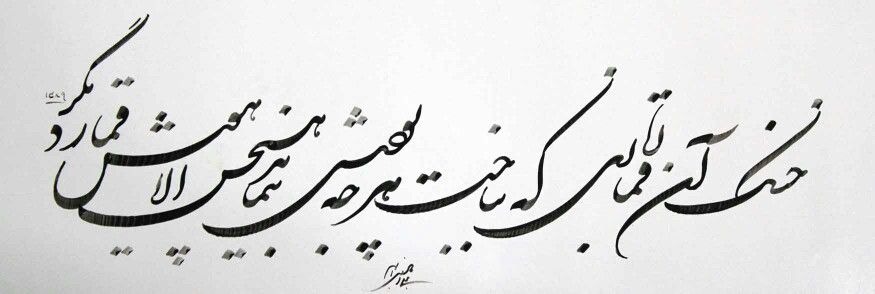 خنک آن قماربازی که بباخت هر چه بودش بنماند هیچش الا هوس قمار دیگر
۱۳۸۹